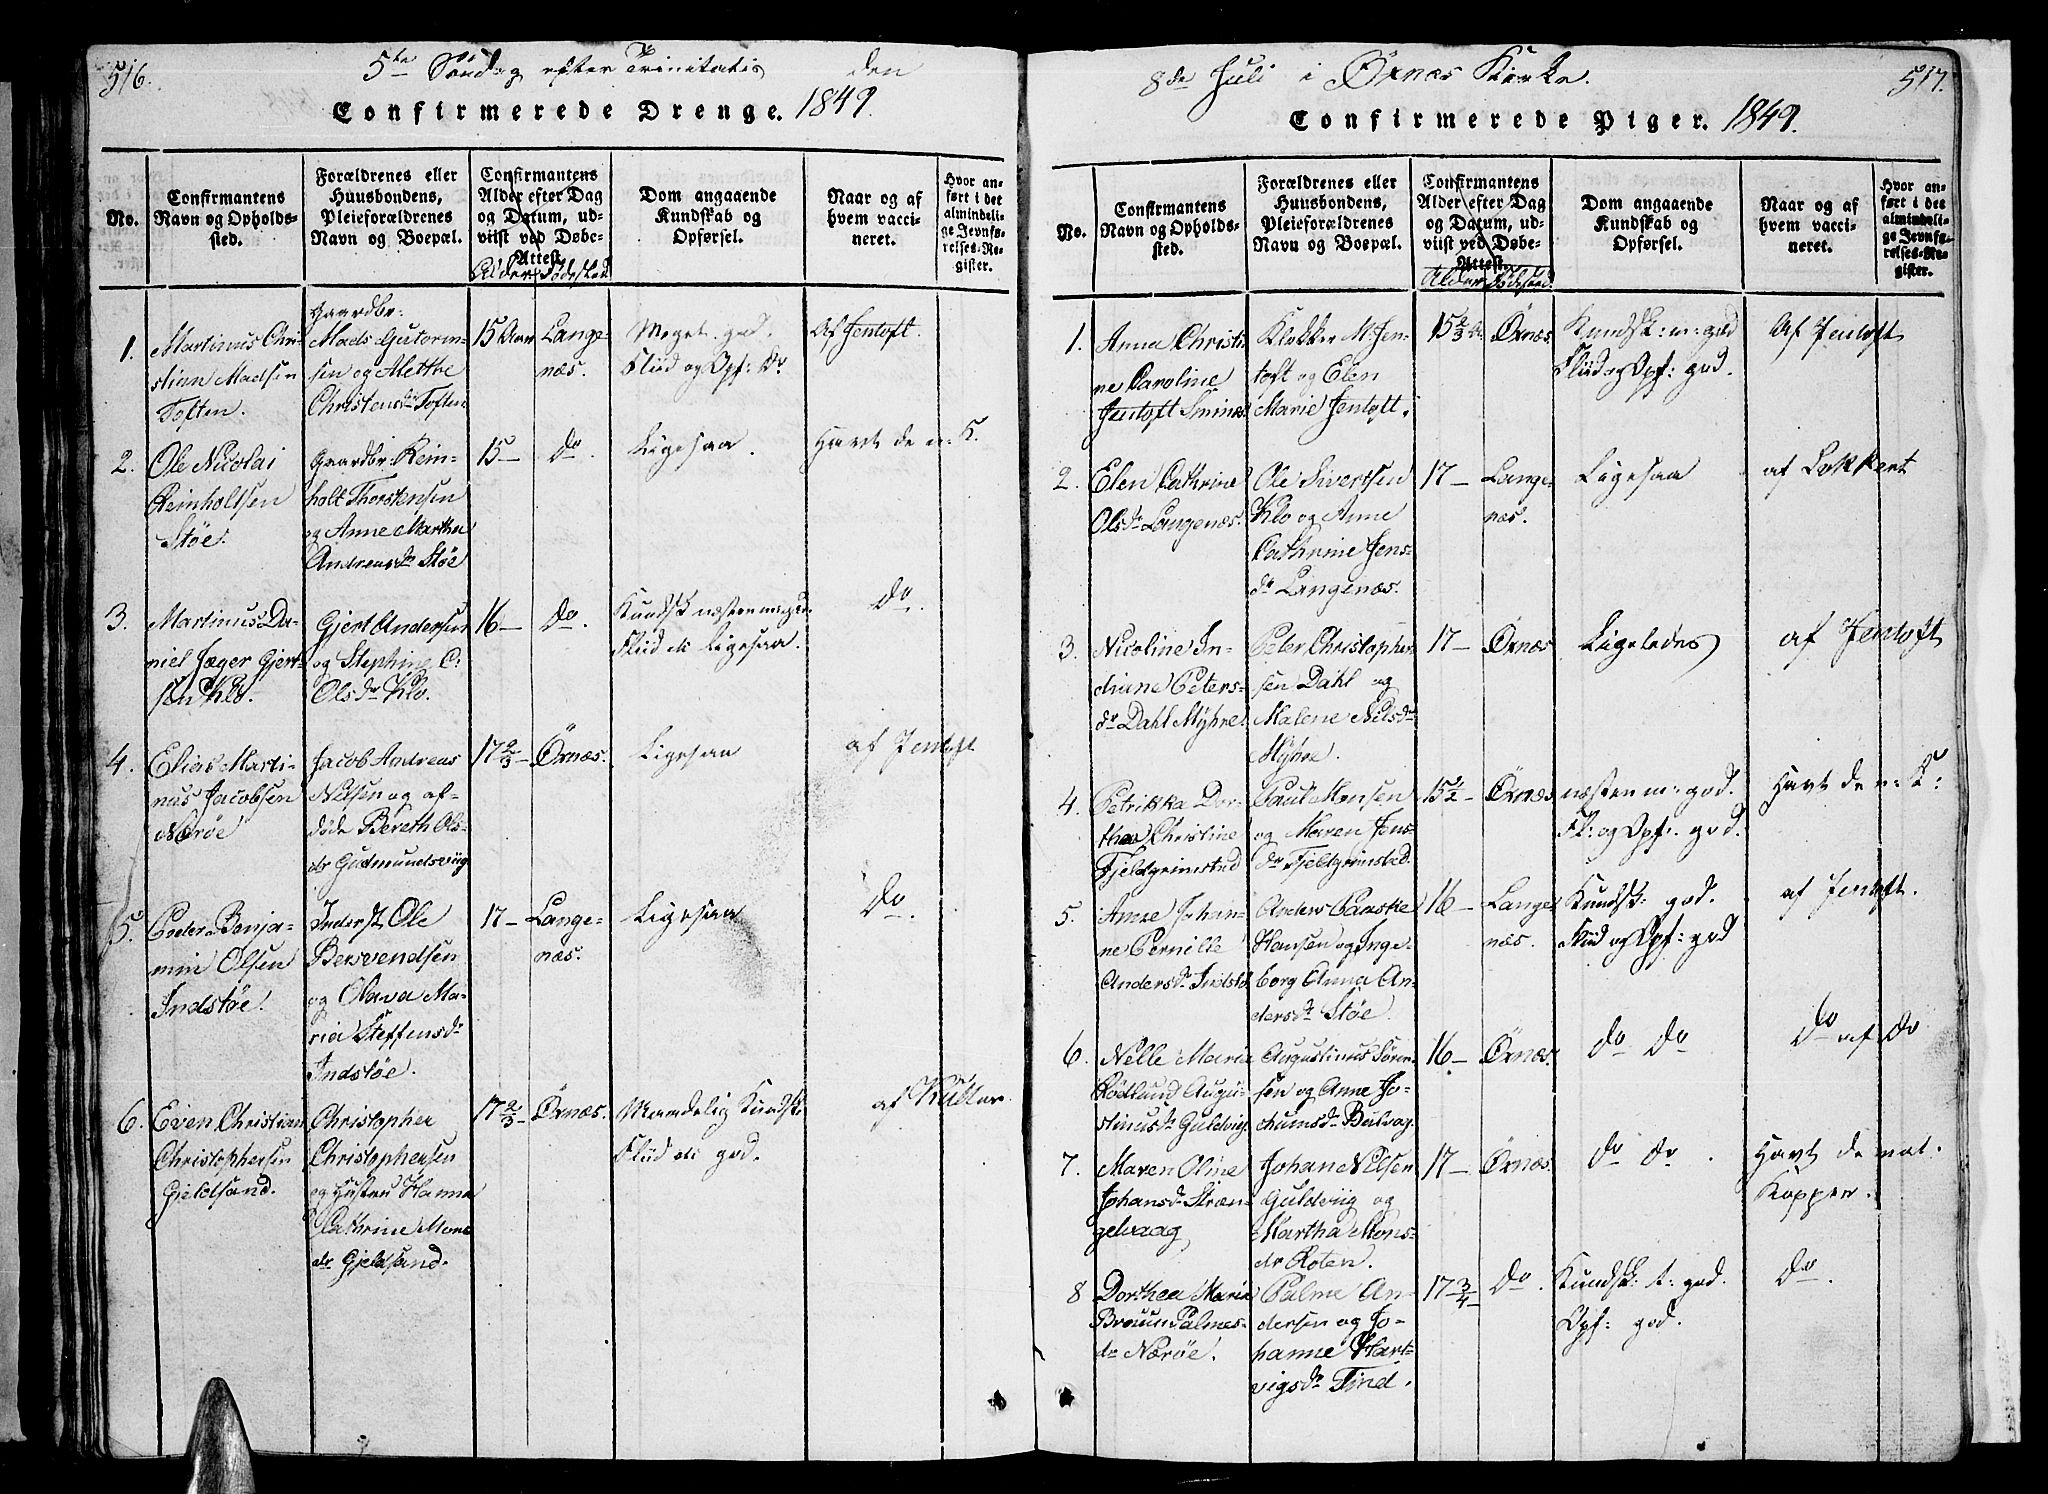 516.
5te Søndag efter Trinitatis den
Confirmerede Drenge. 1849.
No.
Confirmantens
Navn og Opholds-
sted.
Forældrenes eller
Huusbondens,
Pleieforældrenes
Navn og Boepæl.
Confirmantens
Alder efter Dag
og Datum, ud-
viist ved Døbe-
Attest.
Alder Fødested
Dom angaaende
Kundskab og
Opførsel.
Naar og af
hvem vacci-
neret.
Hvor an-
ført i det
almindeli-
ge Jevnfø-
relses-Re-
gister.
1.
Martinus Chri-
stian Madsen
Toften.
Gaardbr.
Mads Gutorm-
sen og Mette
Christensdr Toften
15 Aar
Lange-
næs.
Meget god.
Fliid og Opf: do
Af Jentoft.
2.
Ole Nicolai
Reinholtsen
Støe.
Gaardbr. Rein-
holt Thorstensen
og Anne Martha
Andreasdr Støe
15 —
do.
Ligesaa.
Havt de n: K.
3.
Martinus Da-
niel Jæger Gjert-
sen Klo.
Gjert Andersen
og Stephine C:
Olsdr Klo.
16 —
do.
Kundsk næsten meget
Fliid etc ligesaa.
do.
4.
Elias Marti-
nus Jacobsen
Nærøe
Jacob Andreas
Nilsen og af-
døde Bereth Ols-
dr Gudmundsviig
17 2/3 —
Örnæs.
Ligesaa
af Jentoft
5.
Peder Benja-
min Olsen
Indstøe.
Inderst Ole
Bersvendsen
og Olava Ma-
ria Steffensdr
Indstøe.
17 —
Lange-
næs.
Ligesaa
do.
6.
Even Christian
Christophersen
Gjeldsand.
Christopher
Christophersen
og Hustru Hanna
Cathrine Mons
dr Gjeldsand.
17 2/3 —
Örnæs.
Maadelig Kundsk:
Fliid etc god.
af
517.
8de Juli i Öxnæs Kirke.
Confirmerede Piger. 1849.
No.
Confirmantens
Navn og Opholds-
sted.
Forældrenes eller
Huusbondens,
Pleieforældrenes
Navn og Boepæl.
Confirmantens
Alder efter Dag
og Datum, ud-
viist ved Døbe-
Attest.
Alder Fødested
Dom angaaende
Kundskab og
Opførsel.
Naar og af
hvem vacci-
neret.
Hvor an-
ført i det
almindeli-
ge Jevnfø-
relses-Re-
gister.
1.
Anna Christi
ne Caroline
Jentoft Smines
Klokker M. Jen-
toft og Elen
Marie Jentoft.
15 2/3 Aar
Örnæs
Kundsk: m: god
Fliid og Opf: god.
Af Jentoft
2.
Elen Cathrine
Olsdr Langenæs.
Ole Sivertsen
Klo og Anne
Cathrine Jens-
dr Langenæs.
17 —
Lange
næs.
Ligesaa
af Lokkert
3.
Nicoline In-
diane Peters-
dr Dahl Myhre.
Peter Christopher
sen Dahl og
Malene Nilsdr
Myhre.
17 —
Örnæs
Ligeledes
af Jentoft
4.
Petrikka Dor-
thea Christine
Fjeldgrimstad
Paul Monsen
og Maren Jens-
dr Fjeldgrimstad.
15 1/2 —
Örnæs
næsten m: god.
Fl: og Opf: god.
Havt de n: K:
5.
Anne Johan-
ne Pernille
Andersdr Indstø
Anders Panske
Hansen og Inge-
borg Anna An-
dersdr Støe.
16 —
Lange
næs.
Kundsk: god.
Fliid og Opf: god
af Jentoft.
6.
Nelle Maria
Rødlund Augu-
stinusdr Guldvig.
Augustinus Søren-
sen og Anne Jo-
chumsdr Bulvag.
16 —
Örnæs.
do do
do af do
7.
Maren Oline
Johansdr Stræn-
gelvaag
Johan Nilsen
Guldviig og
Martha Mons-
dr Roten.
17 —
Örnæs.
do do.
Havt de nat.
Kopper.
8
Dorthea Maria
Bruun Palmes-
dr Nærøe.
Palme An-
dersen og Jo-
hanne Hart-
vigsdr Tind.
17 3/4 —
do.
Kundsk: t: god.
Opf: god.
do.